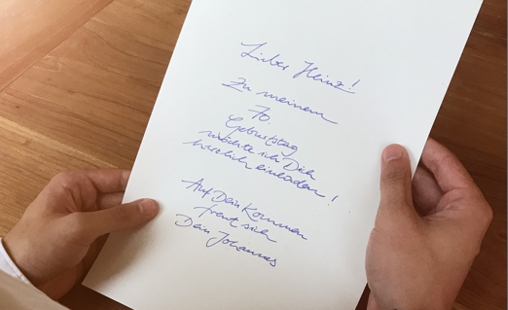 Lieber Heinz!
Zu meinem
70.
Geburtstag
möchte ich Dich
herzlich einladen!
Auf Dein Kommen
freut sich
Dein Johannes